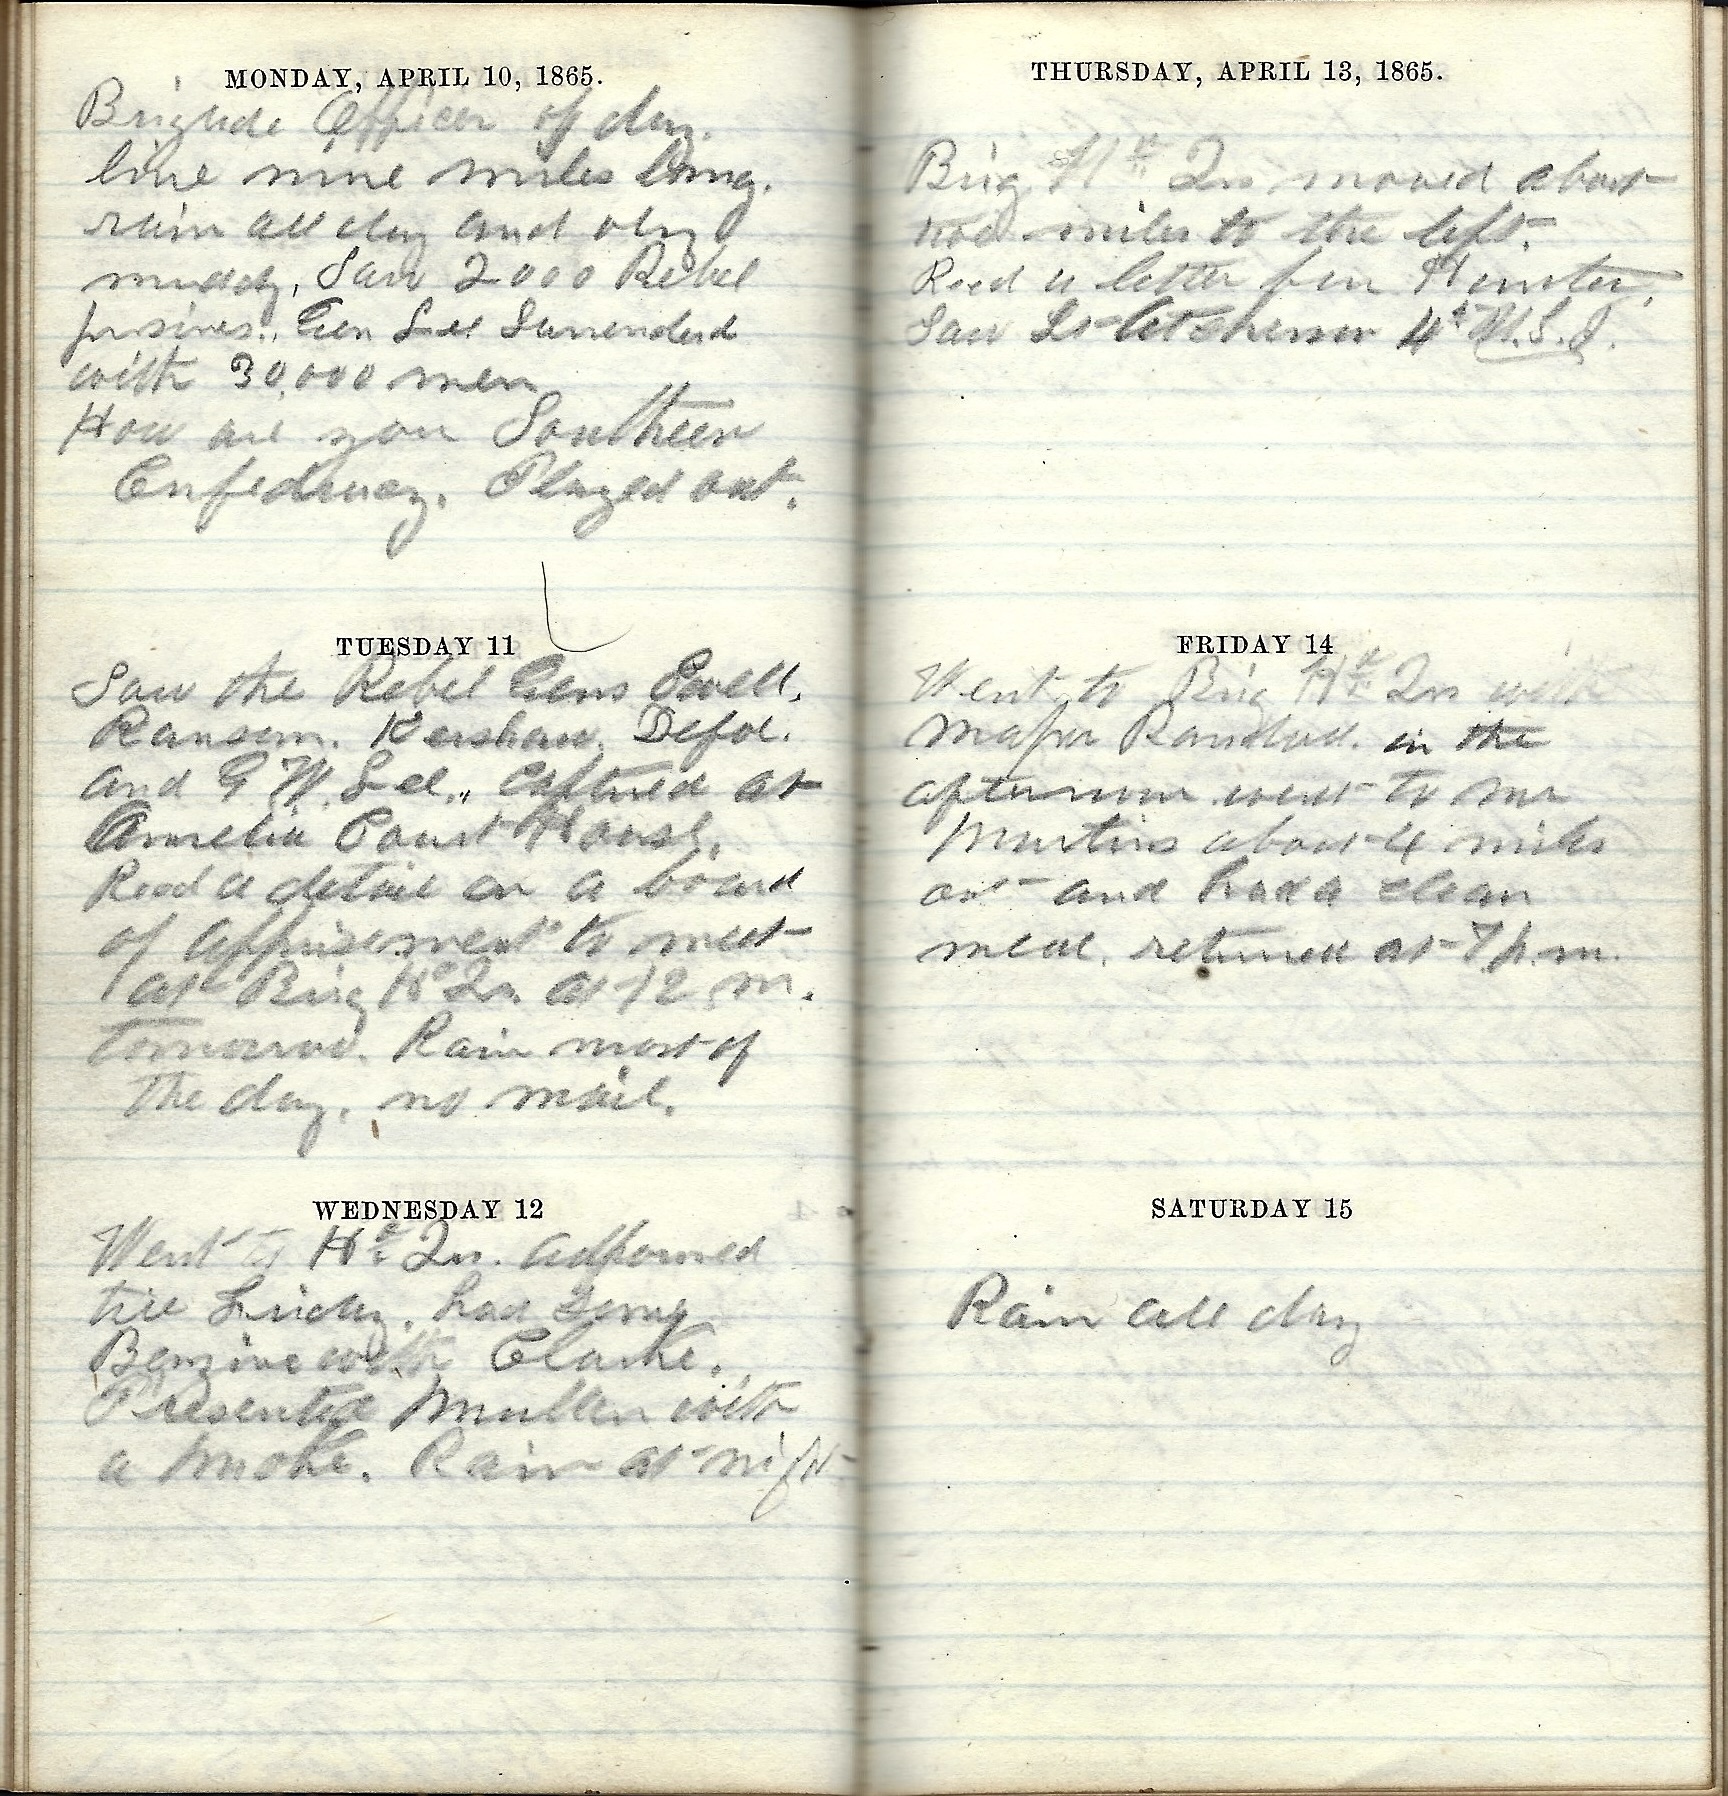 MONDAY, APRIL 10, 1865.
Brigade Officer of day.
line nine miles long.
rain all day and very
muddy, Saw 2000 Rebel
prisiners. Gen Lee Surrenderd
with 30,000 men
How are you Southern
Confedracy. Played out.
TUESDAY 11
Saw the Rebel Gens Ewell,
Ransom. Kershaw. Defoe.
and G W. Lee., Captured at
Amelia Court House.
Recd a detail on a board
of apprisement to meet
at Brig Hd Qrs. at 12 m.
tomorrow. Rain most of
the day. no mail.
WEDNESDAY 12
Went to Hd Qrs. adjourned
till Friday. had some
Benzine with Clarke.
Presented Mullen with
a smoke. Rain at night
THURSDAY, APRIL 13, 1865.
Brig Hd Qrs moved about
two miles to the left.
Recd a letter from
Saw Lt 4th U.S.I.
FRIDAY 14
Went to Brig Hd Qrs with
Major Randall. in the
afternoon went to Mr
Martins about 4 miles
out and had a clean
meal. returned at 7 p.m.
SATURDAY 15
Rain all day